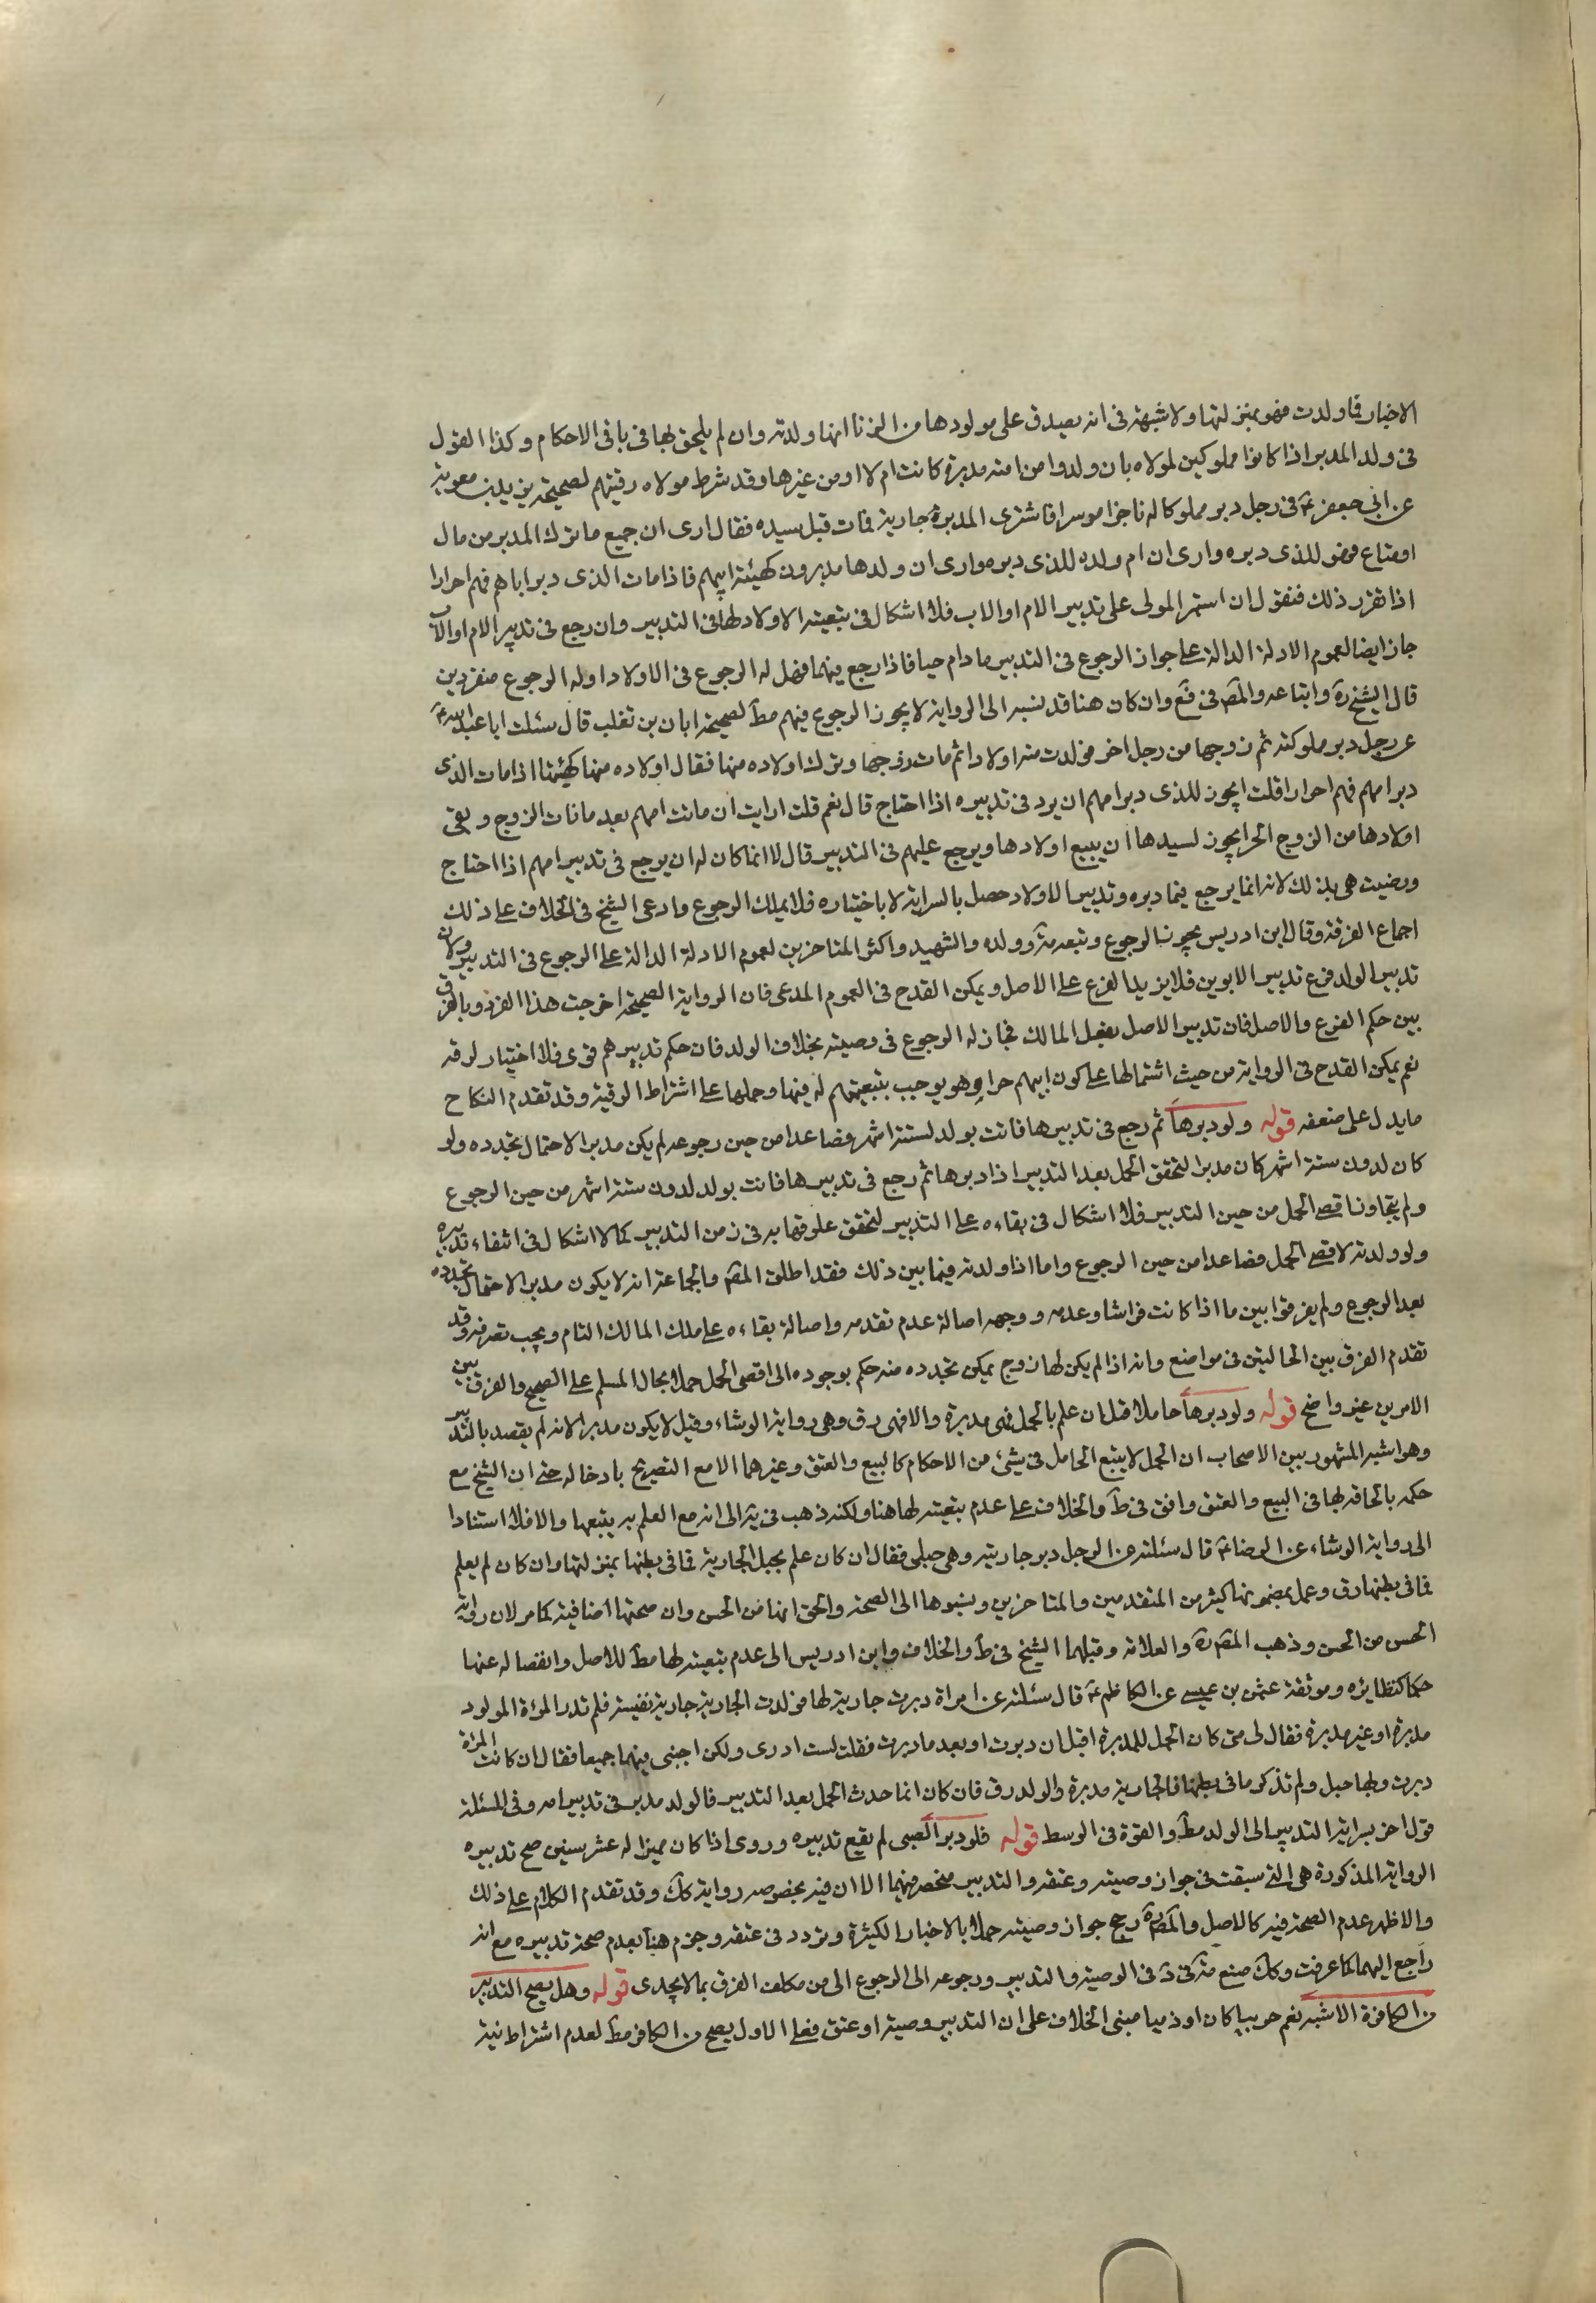 الاخبار فما ولدت فهو بمنزلتها ولا شبهة فى انه يصدق على مولودها من الزنا انها ولدته وان لم يلحق بها فى باقى الاحكام وكذا القول
فى ولد المدبر اذا كانوا مملوكين لمولاه بان ولدوا من امته مدبرة كانت ام لا او من غيرها وقد شرط مولاه رقيتهم لصحيحة يزيد بن معوية
عن ابى جعفر ع فى رجل دبر مملوكا له تاجرا موسرا فاشترى المدبر جارية فمات قبل سيده فقال ارى ان جميع ما ترك المدبر من مال
او متاع فهو للذى دبره وارى ان ام ولده للذى دبره وارى ان ولدها مدبرون كهيئة ابيهم فاذا مات الذى دبر اباهم فهم احرار
اذا تقرر ذلك فنقول ان استمر المولى على تدبير الام او الاب فلا اشكال فى تبعية الاولاد لها فى التدبير وان رجع فى تدبير الام او الاب
جاز ايضا لعموم الادلة الدالة على جواز الرجوع فى التدبير ما دام حيا فاذا رجع فيهما فهل له الرجوع فى الاولاد اوله الرجوع منفردين
قال الشيخ ره واتباعه والمص فى فع وان كان هنا قد نسبه الى الرواية لا يجوز الرجوع فيهم مط لصحيحة ابان بن تغلب قال سئلت ابا عبد الله ع
عن رجل دبر مملوكته ثم زوجها من رجل اخر فولدت منه اولادا ثم مات زوجها وترك اولاده منها فقال اولاده منها كهيئتها اذا مات الذى
دبر امهم فهم احرار قلت ايجوز للذى دبر امهم ان يرد فى تدبيره اذا احتاج قال نعم قلت ارايت ان ماتت امهم بعد ما مات الزوج وبقى
اولادها من الزوج الحر ايجوز لسيدها ان يبيع اولادها ويرجع عليهم فى التدبير قال لا انما كان له ان يرجع فى تدبير امهم اذا احتاج
ورضيت هى بذلك لانه انما يرجع فيما دبره وتدبير الاولاد حصل بالسراية لا باختياره فلا يملك الرجوع وادعى الشيخ فى الخلاف على ذلك
اجماع الفرقة وقال ابن ادريس يجوز الرجوع وتبعه مة وولده والشهيد واكثر المتاخرين لعموم الادلة الدالة على الرجوع فى التدبير ولان
تدبير الولد فرع تدبير الابوين فلا يزيد الفرع على الاصل ويمكن القدح فى العموم المدعى فان الرواية الصحيحة اخرجت هذا الفرد وبالفرق
بين حكم الفرع والاصل فان تدبير الاصل بفعل المالك فجاز له الرجوع فى وصيته بخلاف الولد فان حكم تدبيرهم قهرى فلا اختيار لرقه
نعم يمكن القدح فى الرواية من حيث اشتمالها على كون ابيهم حرا وهو يوجب تبعيتهم له فيها وحملها على اشتراط الرقية وقد تقدم النكاح
ما يدل على ضعفه قوله ولو دبرها ثم رجع فى تدبيرها فاتت بولد لستة اشهر فصاعدا من حين رجوعه لم يكن مدبرا لاحتمال تجدده ولو
كان لدون ستة اشهر كان مدبرا لتحقق الحمل بعد التدبير اذا دبرها ثم رجع فى تدبيرها فاتت بولد لدون ستة اشهر من حين الرجوع
ولم يتجاوز اقصى الحمل من حين التدبير فلا اشكال فى بقاءه على التدبير لتحقق علوقها به فى زمن التدبير كما لا اشكال فى انتفاء تدبيره
ولو ولدته لاقصى الحمل فصاعدا من حين الرجوع واما اذا ولدته فيما بين ذلك فقد اطلق المص والجماعة انه لا يكون مدبرا لاحتمال تجدده
بعد الرجوع ولم يفرقوا بين ما اذا كانت فراشا وعدمه ووجهه اصالة عدم تقدمه واصالة بقاءه على ملك المالك التام ويجب تصرفه وقد
تقدم الفرق بين الحالتين فى مواضع وانه اذا لم يكن لها زوج يمكن تجدده منه حكم بوجوده الى اقصى الحمل حملا لحال المسلم على الصحيح والفرق بين
الامرين غير واضح قوله ولو دبرها حاملا قيل ان علم بالحمل فهى مدبرة والا فهى رق وهى رواية الوشاء وقيل لا يكون مدبرا لانه لم يقصد بالتدبير
وهو اشبه المشهور بين الاصحاب ان الحمل لا يتبع الحامل فى شئ من الاحكام كالبيع والعتق وغيرهما الا مع التصريح بادخاله حتى ان الشيخ مع
حكمه بالحاقه لها فى البيع والعتق وافق فى ط والخلاف على عدم تبعيته لها هنا ولكنه ذهب فى ية الى انه مع العلم به يتبعها والا فلا استنادا
الى رواية الوشاء عن الرضا ع قال سئلته عن الرجل دبر جاريته وهى حبلى فقال ان كان علم بحبل الجارية فما فى بطنها بمنزلتها وان كان لم يعلم
فما فى بطنها رق وعمل بمضمونها كثير من المتقدمين والمتاخرين ونسبوها الى الصحة والحق انها من الحسن وان صحتها اضافية كما مر لان رواته
الحسن من الحسن وذهب المص ره والعلامة وقبلهما الشيخ فى ط والخلاف وابن ادريس الى عدم تبعيته لها مط للاصل وانفصاله عنها
حكما كنظايره وموثقة عثمن بن عيسى عن الكاظم ع قال سئلته عن امراة دبرت جارية لها فولدت الجارية جارية نفيسة فلم تدر المراة المولود
مدبرة او غير مدبرة فقال لى متى كان الحمل للمدبرة اقبل ان دبرت او بعد ما دبرت فقلت لست ادرى ولكن اجبنى فيهما جميعا فقال ان كانت المراة
دبرت ولها حبل ولم تذكر ما فى بطنها فالجارية مدبرة والولد رق فان كان انما حدث الحمل بعد التدبير فالولد مدبر فى تدبير امه وفى المسئلة
قول اخر بسراية التدبير الى الولد مط والقوة فى الوسط قوله فلو دبر الصبى لم يقع تدبيره وروى اذا كان مميزا له عشر سنين صح تدبيره
الرواية المذكورة هى التى سبقت فى جواز وصيته وعتقه والتدبير منحصر فيهما الا ان فيه بخصوصه رواية كك وقد تقدم الكلام على ذلك
والاظهر عدم الصحة فيه كالاصل والمص ره رجح جواز وصيته حملا بالاخبار الكثيرة وتردد فى عتقه وجزم هنا بعدم صحة تدبيره مع انه
راجع اليهما كما عرفت وكك صنع مة فى فى الوصية والتدبير ورجوعه الى الرجوع الى من مكلف الفرق بما لا يجدى قوله وهل يصح التدبير
من الكافر الاشبه نعم حربيا كان او ذميا مبنى الخلاف على ان التدبير وصية او عتق فعلى الاول يصح من الكافر مط لعدم اشتراط نية